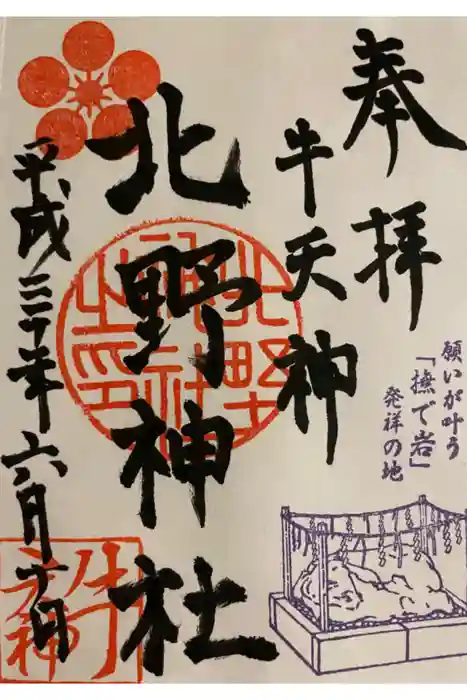 奉拝
牛天神
北野神社
平成三十年六月十日
願いが叶う
「撫で岩」
発祥の地
牛天神